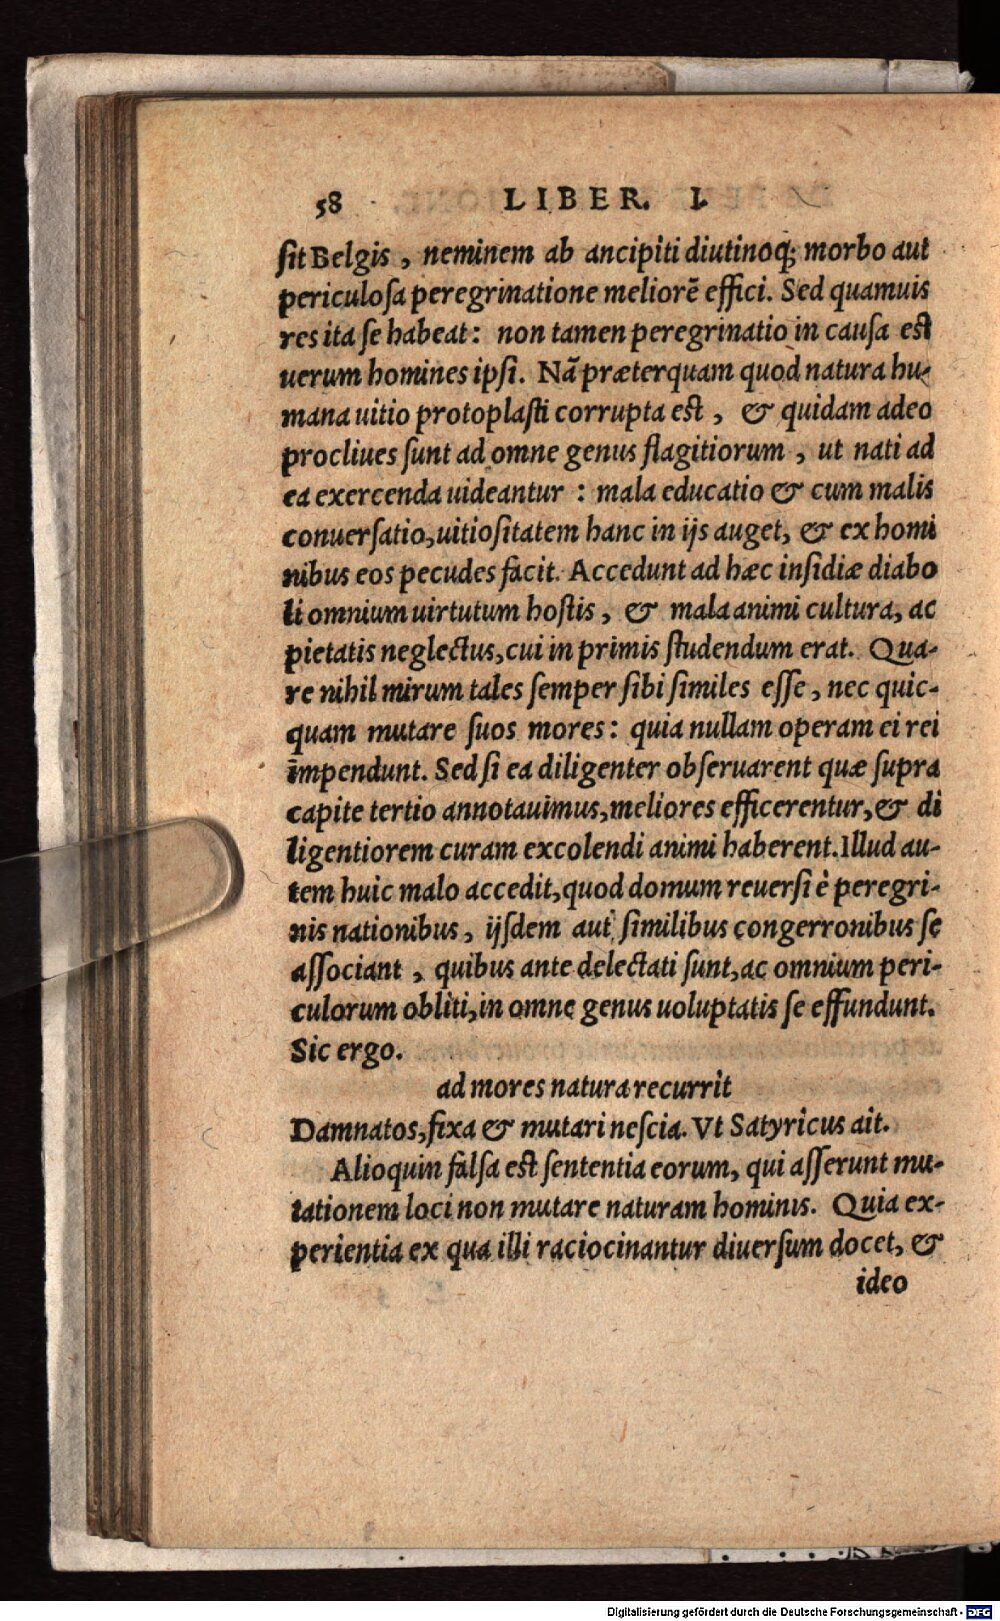 58 LIBER. I.
sit Belgis, neminem ab ancipiti diutinoq; morbo aut
periculosa peregrinatione meliorẽ effici. Sed quamuis
res ita se habeat: non tamen peregrinatio in causa est
uerum homines ipsi. Nã præterquam quod natura hu-
mana uitio protoplasti corrupta est, & quidam adeo
procliues sunt ad omne genus flagitiorum, ut nati ad
ea exercenda uideantur: mala educatio & cum malis
conuersatio, uitiositatem hanc in ijs auget, & ex homi
nibus eos pecudes facit. Accedunt ad hæc insidiæ diabo
li omnium uirtutum hostis, & mala animi cultura, ac
pietatis neglectus, cui in primis studendum erat. Qua-
re nihil mirum tales semper sibi similes esse, nec quic-
quam mutare suos mores: quia nullam operam ei rei
impendunt. Sed si ea diligenter obseruarent quæ supra
capite tertio annotauimus, meliores efficerentur, & di
ligentiorem curam excolendi animi haberent. Illud au-
tem huic malo accedit, quod domum reuersi è peregri-
nis nationibus, ijsdem aut similibus congerronibus se
associant, quibus ante delectati sunt, ac omnium peri-
culorum obliti, in omne genus uoluptatis se effundunt.
Sic ergo.
ad mores natura recurrit
Damnatos, fixa & mutari nescia. Vt Satyricus ait.
Alioquin falsa est sententia eorum, qui asserunt mu-
tationem loci non mutare naturam hominis. Quia ex-
perientia ex qua illi raciocinantur diuersum docet, &
ideo
Digitalisierung gefördert durch die Deutsche Forschungsgemeinschaft - DFG